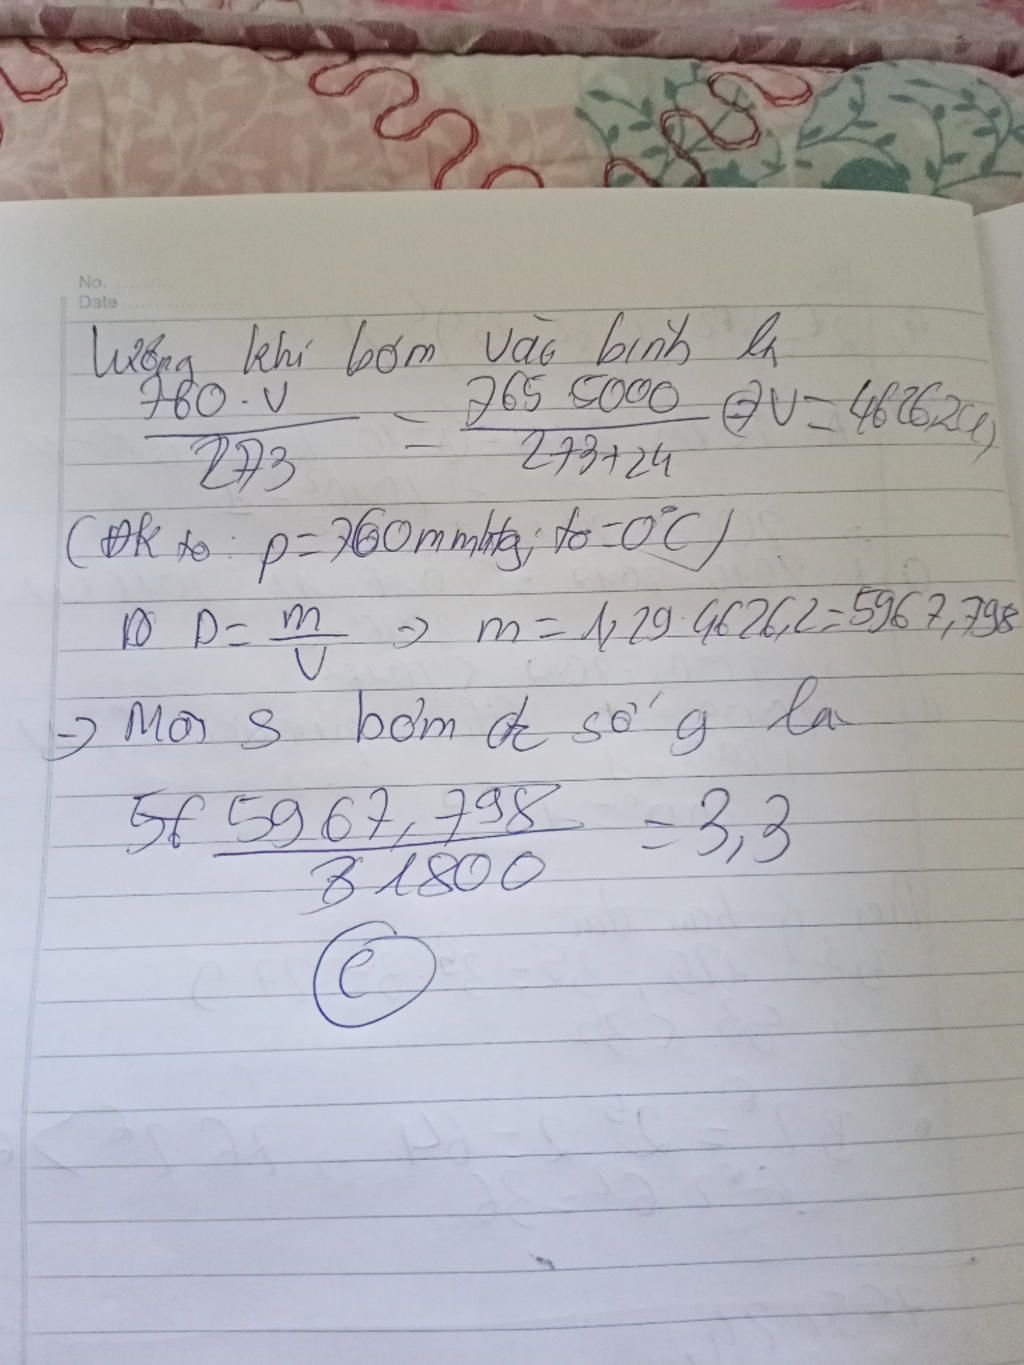 No.
Date
Lượng khí bơm vào bình là
760.V / 273 = 765 5000 / 273+24 ⇒ V = 4626,2(l)
(Đk to: p=760mmHg; to=0°C)
D = m/V ⇒ m = 1,29.4626,2=5967,798
⇒ Mỗi s bơm đc số g là
5967,798 / 1800 = 3,3
C